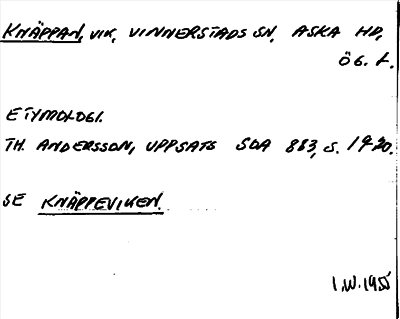 KNÄPPAN, VIK, VINNERSTADS SN, ASKA HD,
ÖG. L.
ETYMOLOGI.
TH. ANDERSSON, UPPSATS SOA 863, S. 19-20.
SE KNÄPPEVIKEN.
I.W. 1955